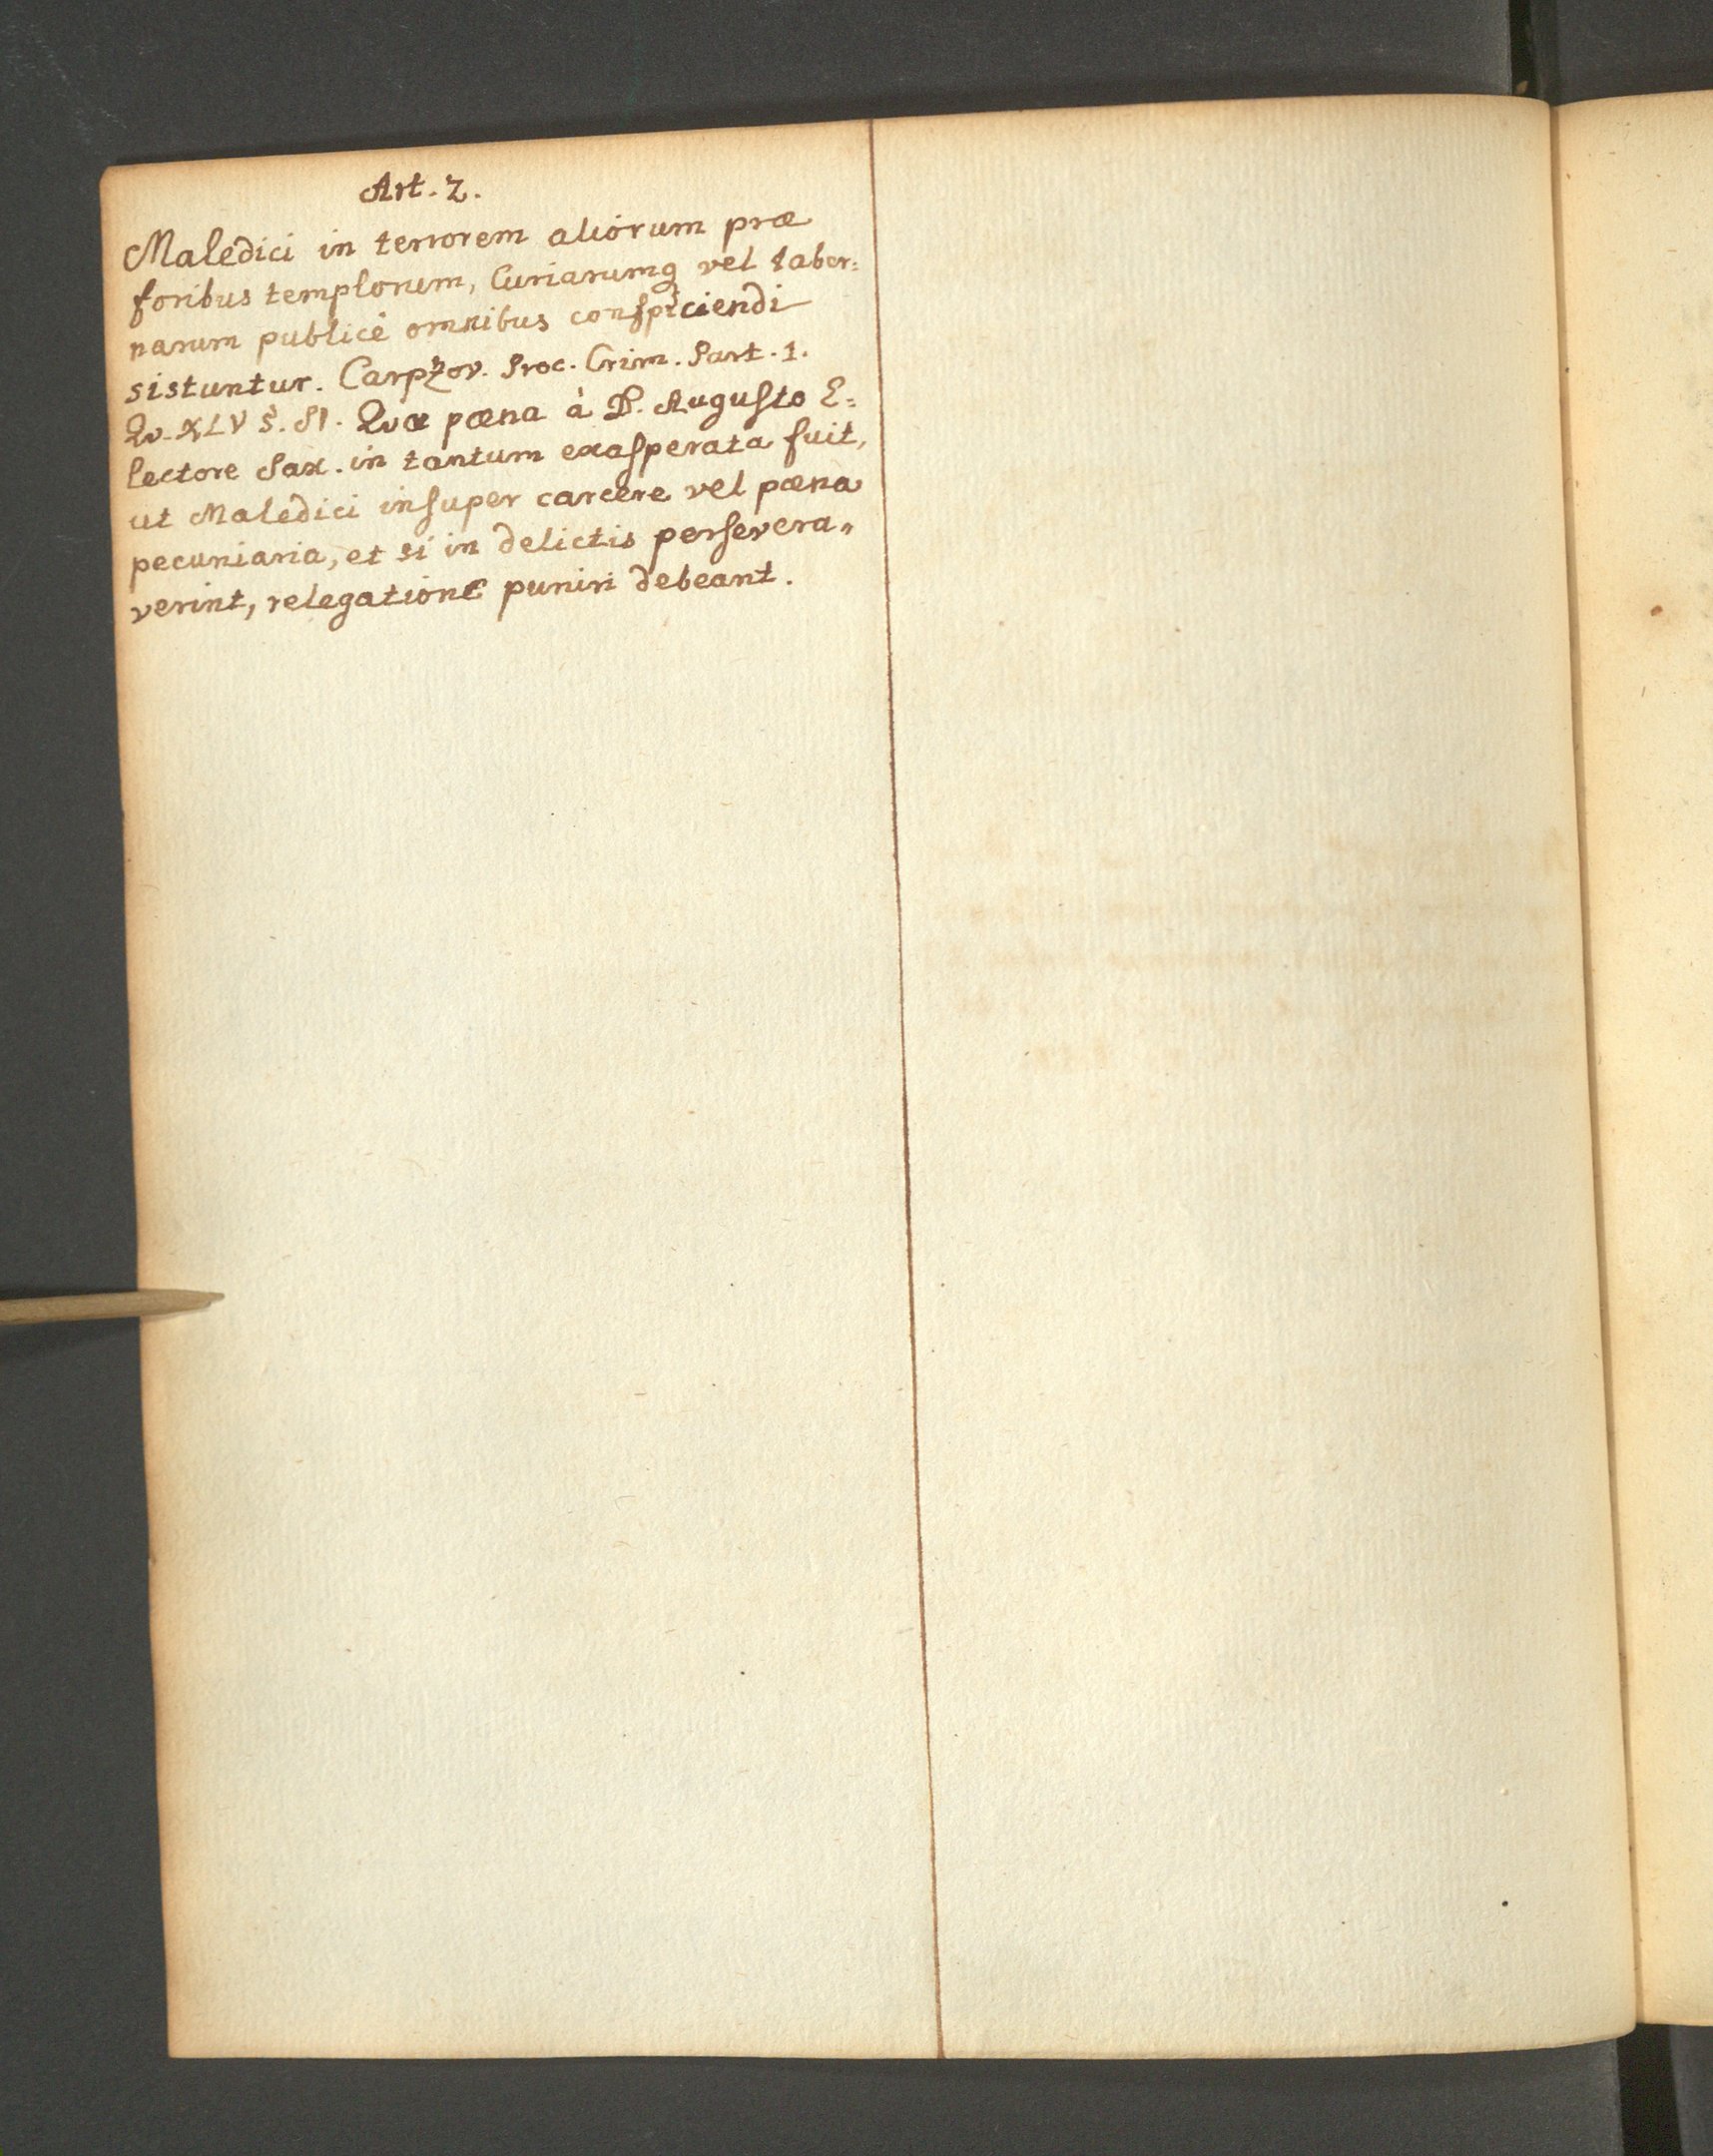 Art. 2.
Maledici in terrorem aliorum præ
foribus templorum, Curiarumq vel taber=
narum publicè omnibus conspiciendi
sistuntur. Carpzov. Proc. Crim. Part. 1.
Qv. XLV §. 51. Qvæ pœna à D. Augusto E=
lectore Sax. in tantum exasperata fuit,
ut Maledici insuper carcere vel pœna
pecuniaria, et si in delictis persevera„
verint, relegatione puniri debeant.